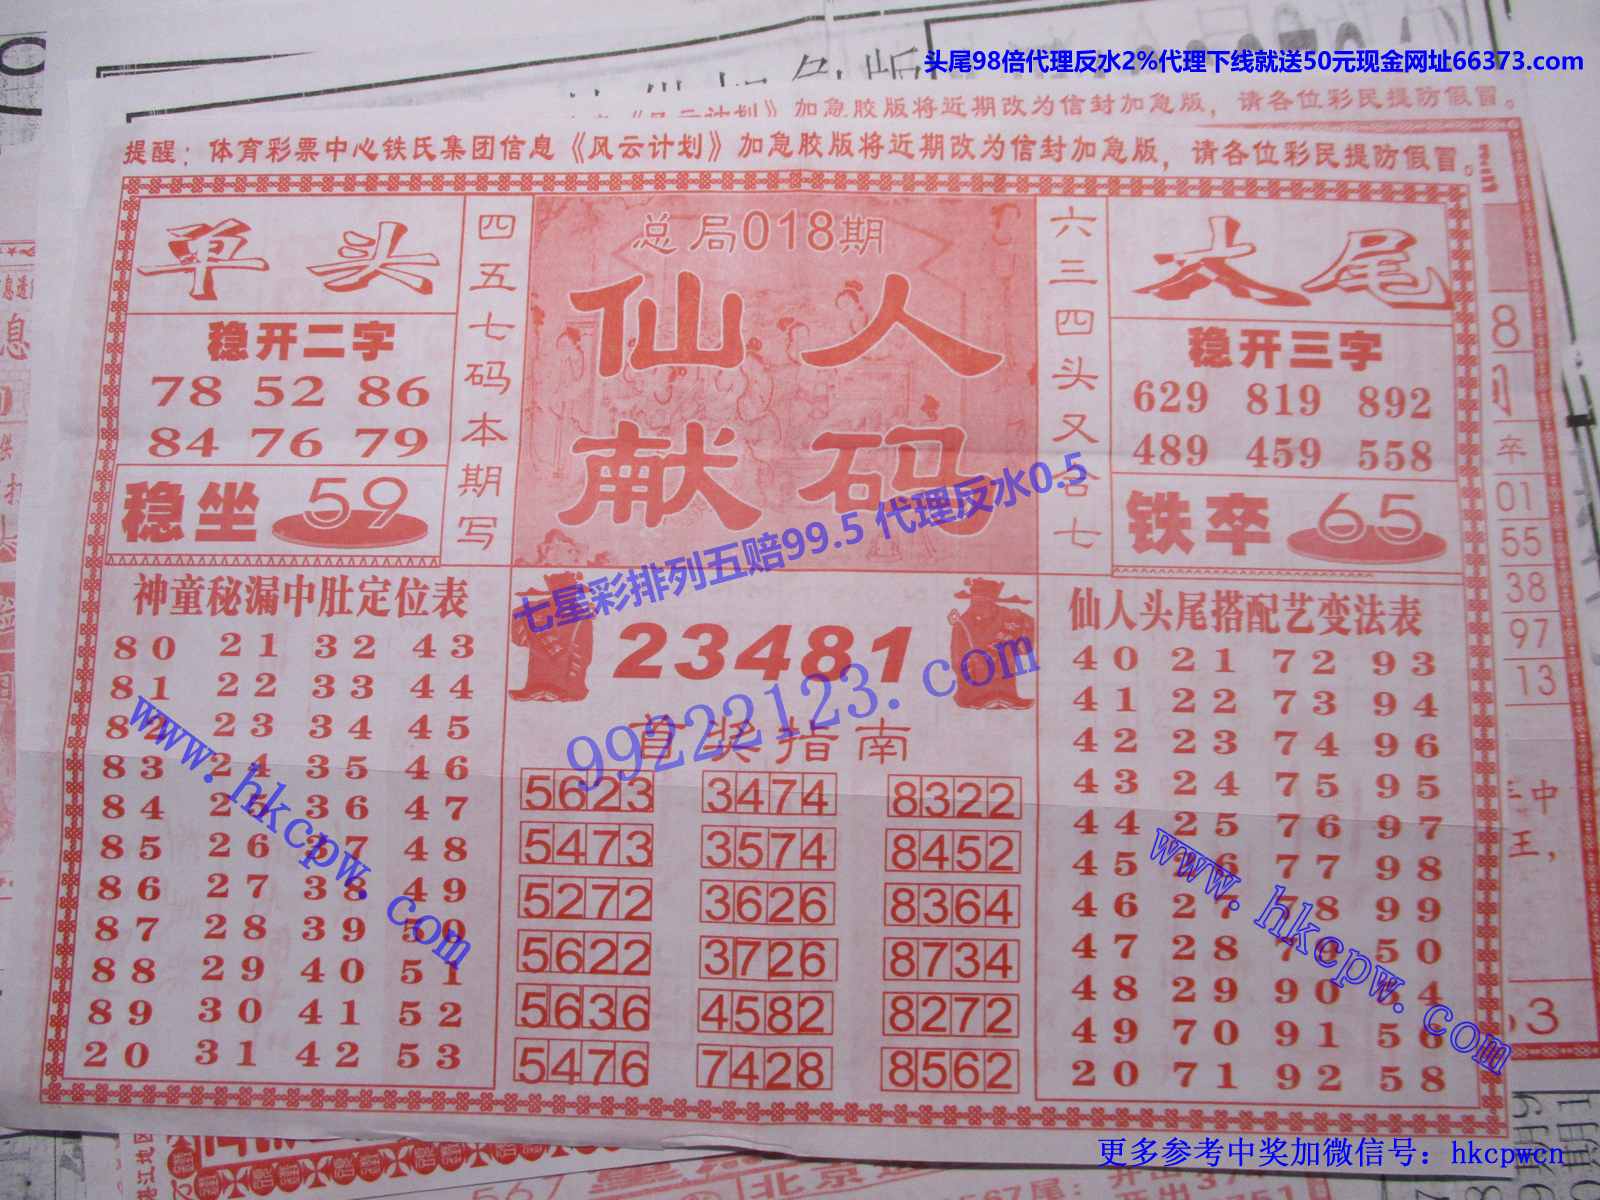 头尾98倍代理反水2%代理下线就送50元现金网址66373.com
加急胶版将近期改为信封加急版，请各位彩民提防假冒。
提醒：体育彩票中心铁氏集团信息《风云计划》加急胶版将近期改为信封加急版，请各位彩民提防假冒。
单头
稳开二字
78 52 86
84 76 79
稳坐 59
四五七码本期写
总局018期
仙人
献码
六三四头又合七
大尾
稳开三字
629 819 892
489 459 558
铁卒 65
七星彩排列五赔99.5 代理反水0.5
神童秘漏中肚定位表
80 21 32 43
81 22 33 44
82 23 34 45
83 24 35 46
84 25 36 47
85 26 37 48
86 27 38 49
87 28 39 50
88 29 40 51
89 30 41 52
20 31 42 53
www.hkcpw.com
23481
99222123.com
首奖指南
5623 3474 8322
5473 3574 8452
5272 3626 8364
5622 3726 8734
5636 4582 8272
5476 7428 8562
仙人头尾搭配艺变法表
40 21 72 93
41 22 73 94
42 23 74 96
43 24 75 95
44 25 76 97
45 26 77 98
46 27 78 99
47 28 79 50
48 29 90 54
49 70 91 56
20 71 92 58
www.hkcpw.com
卒
01
55
38
97
13
更多参考中奖加微信号：hkcpwcn